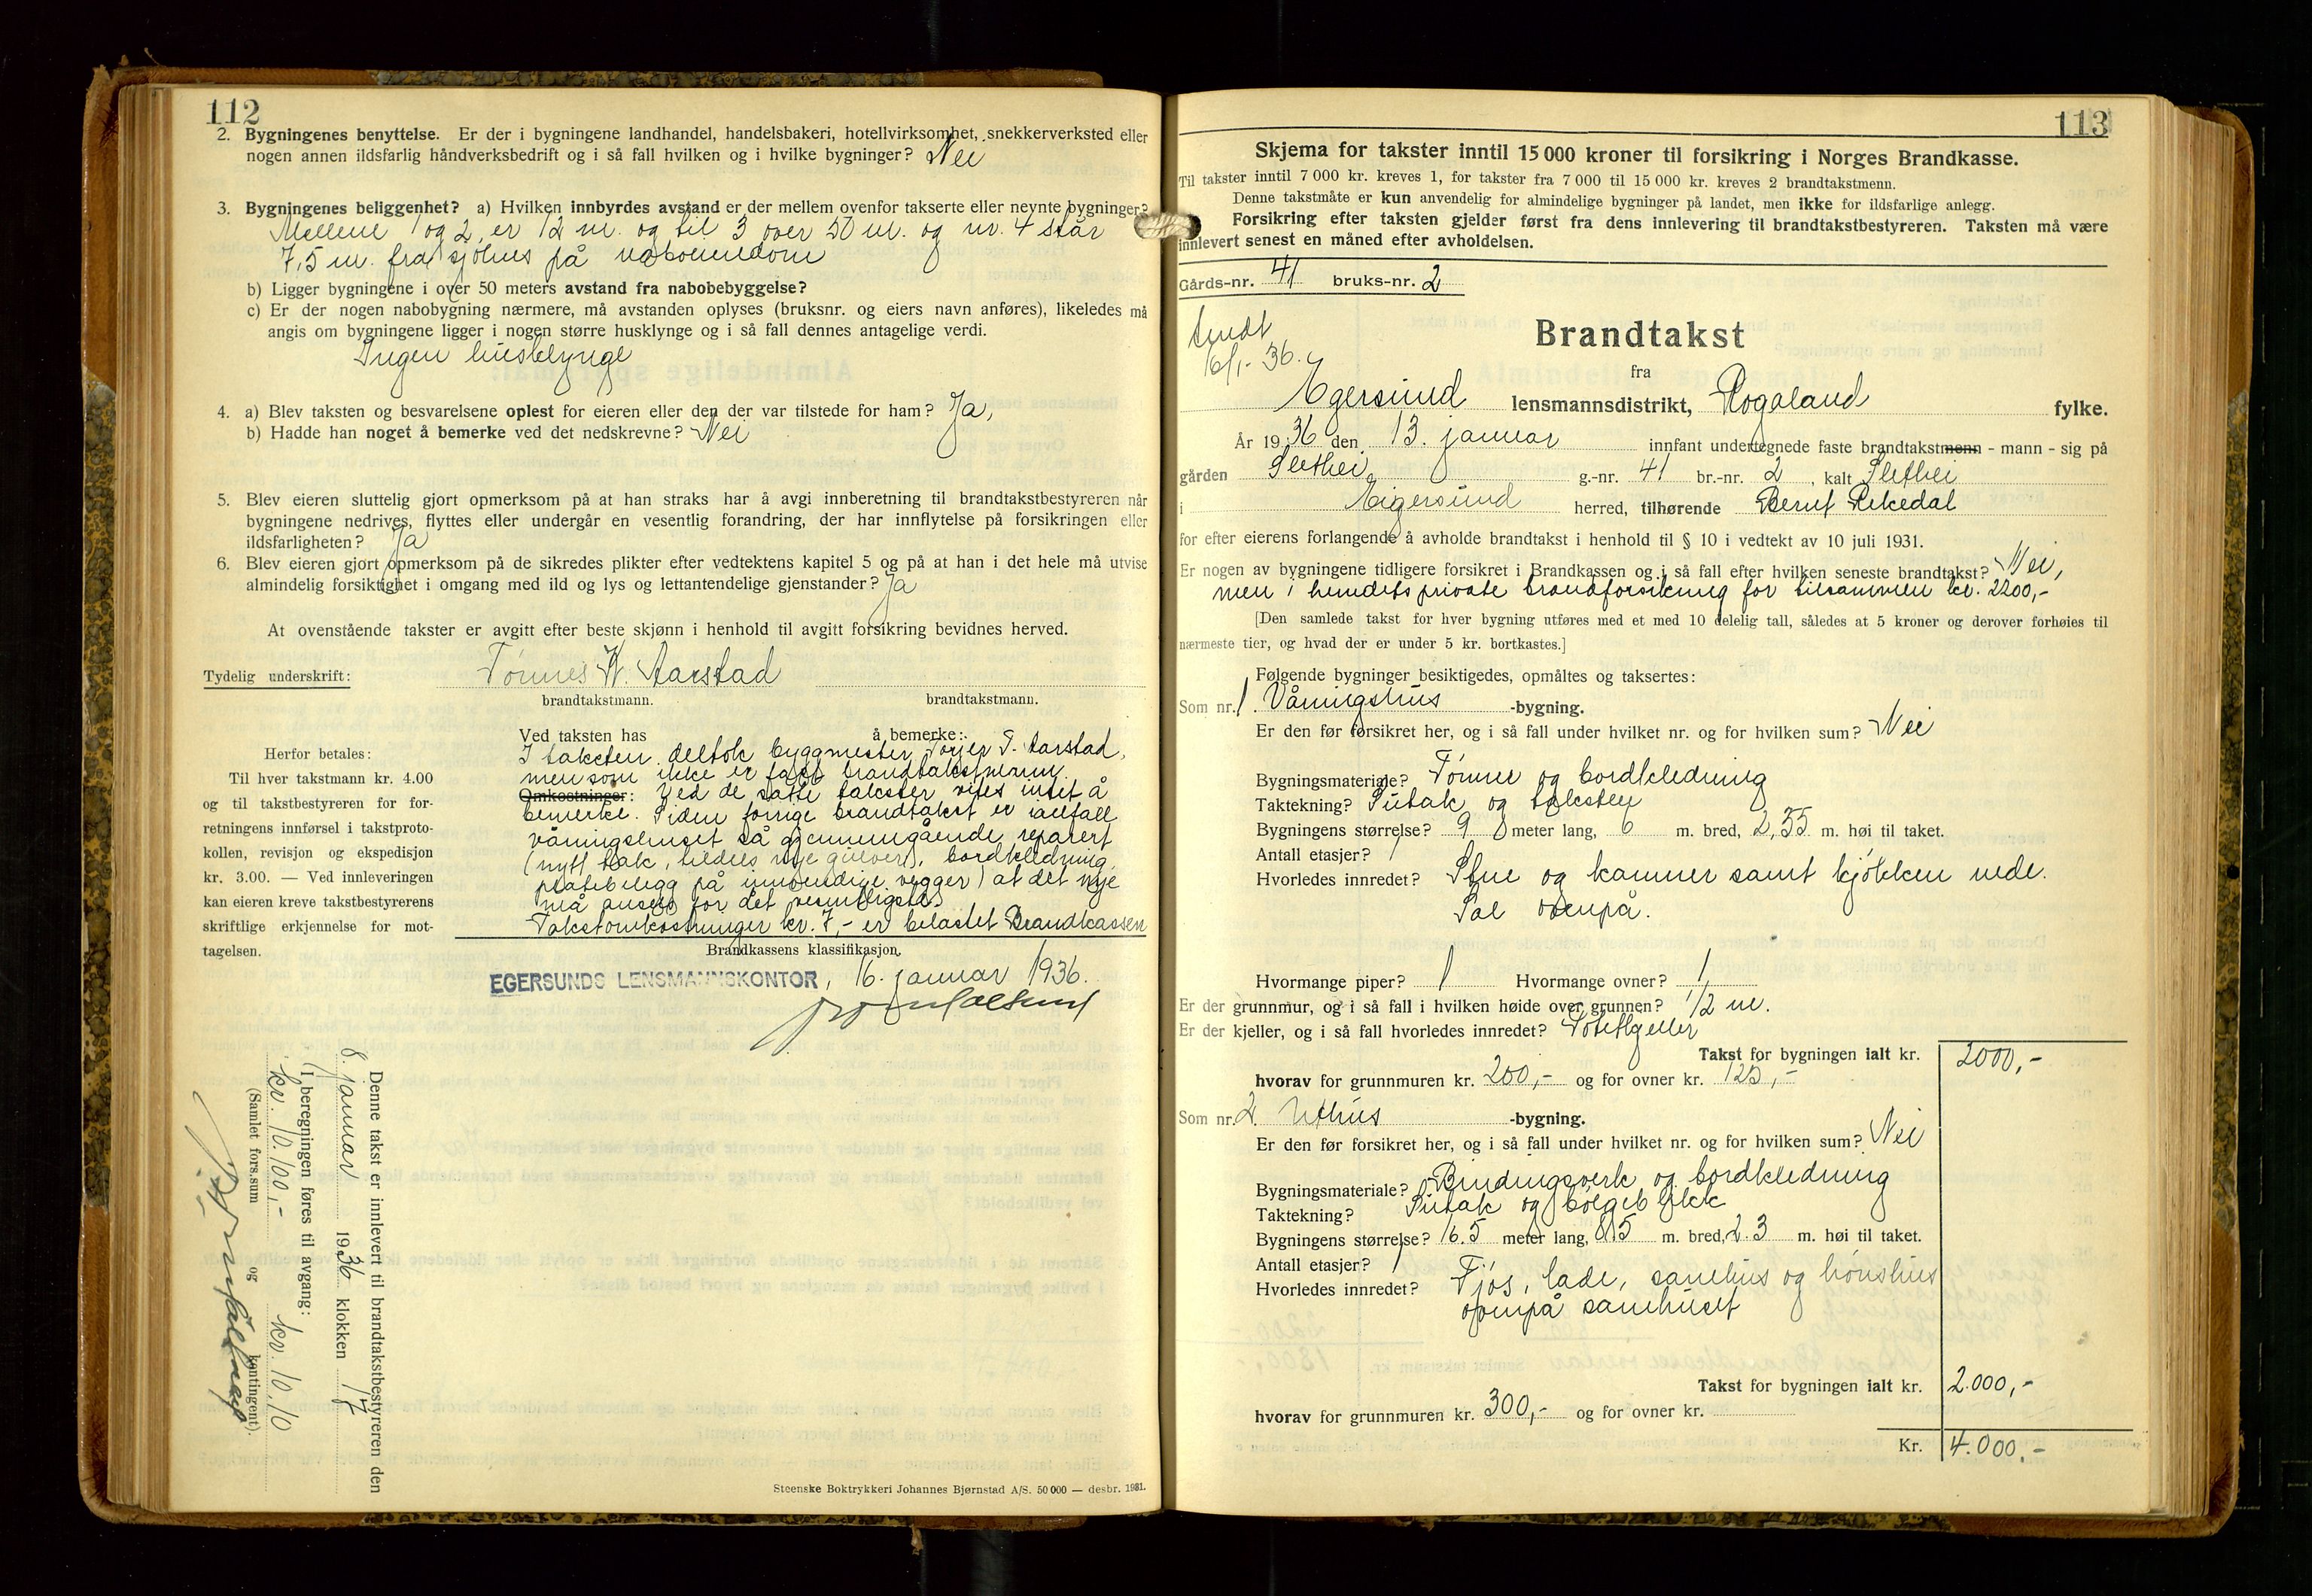 112
2. Bygningenes benyttelse. Er der i bygningene landhandel, handelsbakeri, hotellvirksomhet, snekkerverksted eller
nogen annen ildsfarlig håndverksbedrift og i så fall hvilken og i hvilke bygninger? Nei
3. Bygningenes beliggenhet? a) Hvilken innbyrdes avstand er der mellem ovenfor takserte eller nevnte bygninger?
Mellem 1 og 2 er 12 m. og til 3 over 50 m. og nr. 4 står
7,5 m. fra sjøhus på naboeiendom
b) Ligger bygningene i over 50 meters avstand fra nabobebyggelse?
c) Er der nogen nabobygning nærmere, må avstanden oplyses (bruksnr. og eiers navn anføres), likeledes må
angis om bygningene ligger i nogen større husklynge og i så fall dennes antagelige verdi.
Ingen husklynge
4. a) Blev taksten og besvarelsene oplest for eieren eller den der var tilstede for ham? Ja,
b) Hadde han noget å bemerke ved det nedskrevne? Nei
5. Blev eieren sluttelig gjort opmerksom på at han straks har å avgi innberetning til brandtakstbestyreren når
bygningene nedrives, flyttes eller undergår en vesentlig forandring, der har innflytelse på forsikringen eller
ildsfarligheten? Ja
6. Blev eieren gjort opmerksom på de sikredes plikter efter vedtektens kapitel 5 og på at han i det hele må utvise
almindelig forsiktighet i omgang med ild og lys og lettantendelige gjenstander? Ja
At ovenstående takster er avgitt efter beste skjønn i henhold til avgitt forsikring bevidnes herved.
Tydelig underskrift: Tønnes W. Aarstad
brandtakstmann. brandtakstmann.
Ved taksten has å bemerke:
I taksten deltok byggmester Torjer T. Aarstad,
men som ikke er fast brandtakstmann.
Omkostninger: Ved de satte takster vites intet å
bemerke. Siden forrige brandtakst er iallfall
våningshuset så gjennemgående reparert
(nytt tak, tildels nye gulver, bordkledning,
platebelegg på innvendige vegger) at det nye
må ansees for det vesentligste.
Takstomkostninger kr. 7,- er belastet Brandkassen
Herfor betales:
Til hver takstmann kr. 4.00
og til takstbestyreren for for-
retningens innførsel i takstproto-
kollen, revisjon og ekspedisjon
kr. 3.00. — Ved innleveringen
kan eieren kreve takstbestyrerens
skriftlige erkjennelse for mot-
tagelsen.
Brandkassens klassifikasjon.
EGERSUNDS LENSMANNSKONTOR, 16. januar 1936.
Denne takst er innlevert til brandtakstbestyreren den
8. januar 1936 klokken 17
I beregningen føres til avgang:
kr. 10.100,- kr. 10.10
(Samlet fors.sum og kontingent).
Steenske Boktrykkeri Johannes Bjørnstad A/S. 50 000 — desbr. 1931.
113
Skjema for takster inntil 15 000 kroner til forsikring i Norges Brandkasse.
Til takster inntil 7 000 kr. kreves 1, for takster fra 7 000 til 15 000 kr. kreves 2 brandtakstmenn.
Denne takstmåte er kun anvendelig for almindelige bygninger på landet, men ikke for ildsfarlige anlegg.
Forsikring efter taksten gjelder først fra dens innlevering til brandtakstbestyreren. Taksten må være
innlevert senest en måned efter avholdelsen.
Gårds-nr. 41 bruks-nr. 2
Sendt
16/1-36.
Brandtakst
fra
Egersund lensmannsdistrikt, Rogaland fylke.
År 1936 den 13. januar innfant undertegnede faste brandtakstmenn - mann - sig på
gården Slethei g.-nr. 41 br.-nr. 2, kalt Slethei
i Eigersund herred, tilhørende Bernt Rekedal
for efter eierens forlangende å avholde brandtakst i henhold til § 10 i vedtekt av 10 juli 1931.
Er nogen av bygningene tidligere forsikret i Brandkassen og i så fall efter hvilken seneste brandtakst? Nei,
men i herredets private brandforsikring for tilsammen kr. 2200,-
[Den samlede takst for hver bygning utføres med et med 10 delelig tall, således at 5 kroner og derover forhøies til
nærmeste tier, og hvad der er under 5 kr. bortkastes.]
Følgende bygninger besiktigedes, opmåltes og taksertes:
Som nr. 1. Våningshus -bygning.
Er den før forsikret her, og i så fall under hvilket nr. og for hvilken sum? Nei
Bygningsmateriale? Tømmer og bordkledning
Taktekning? Sutak og taksten
Bygningens størrelse? 9 meter lang, 6 m. bred, 2,55 m. høi til taket.
Antall etasjer? 1
Hvorledes innredet? Stue og kammer samt kjøkken nede.
Sal ovenpå.
Hvormange piper? 1 Hvormange ovner? 1
Er der grunnmur, og i så fall i hvilken høide over grunnen? 1/2 m.
Er der kjeller, og i så fall hvorledes innredet? Potetkjeller
Takst for bygningen ialt kr. 2000,-
hvorav for grunnmuren kr. 200,- og for ovner kr. 125,-
Som nr. 2. Uthus -bygning.
Er den før forsikret her, og i så fall under hvilket nr. og for hvilken sum? Nei
Bygningsmateriale? Bindingsverk og bordkledning
Taktekning? Sutak og bølgeblikk
Bygningens størrelse? 16.5 meter lang, 8.5 m. bred, 2.3 m. høi til taket.
Antall etasjer? 1
Hvorledes innredet? Fjøs, lade, sauehus og hønshus
ovenpå sauehuset
Takst for bygningen ialt kr. 2.000,-
hvorav for grunnmuren kr. 300,- og for ovner kr.
Kr. 4.000.-